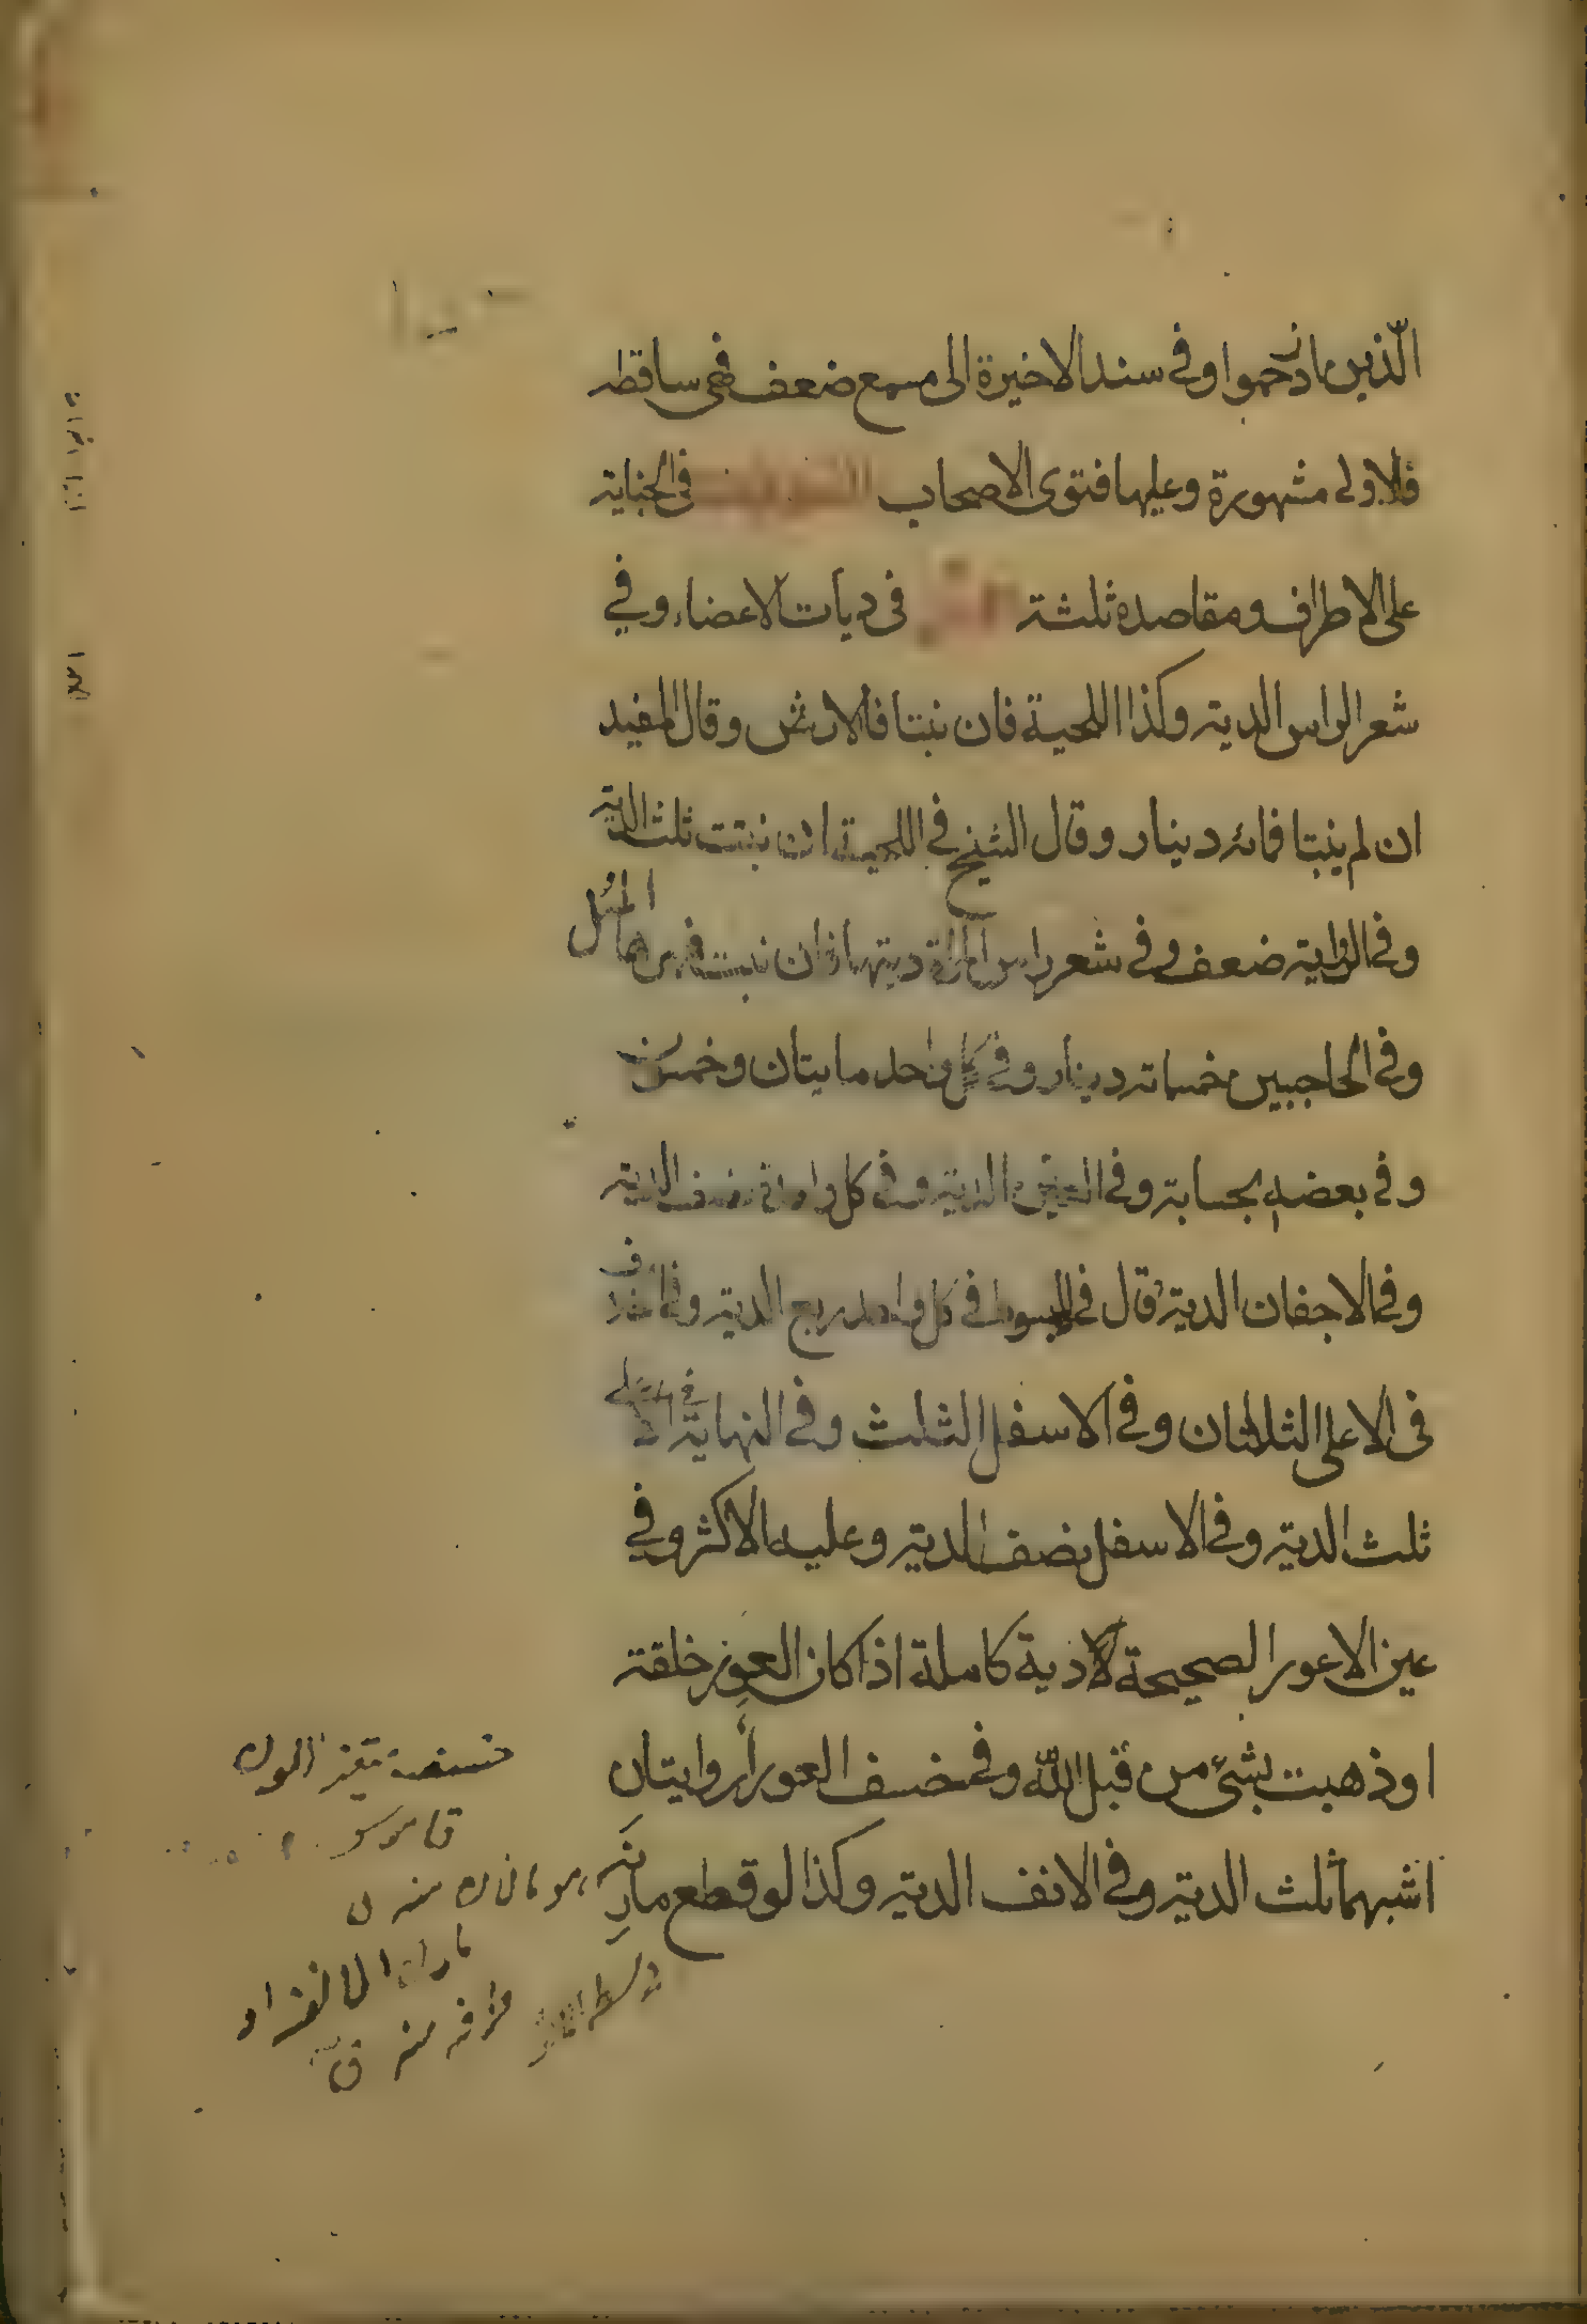 الّذين ازدحموا وفي سند الاخيرة الى مسمع ضعف فهي ساقطه
فالاولى مشهورة وعليها فتوى الاصحاب في الجناية
على الاطراف ومقاصده ثلثة في ديات الاعضاء وفي
شعر الراس الدية وكذا اللحية فان نبتا فالارش وقال المفيد
ان لم ينبتا فمائة دينار وقال الشيخ في اللحية ان نبتت ثلث الدية
وفي الرواية ضعف وفي شعر راس المراة ديتها فان نبت فمهر المثل
وفي الحاجبين خمسمائة دينار وفي كل واحد مايتان وخمسون
وفي بعضه بحسابة وفي العينين الدية وفي كل واحدة نصف الدية
وفي الاجفان الدية قال في المبسوط في كل واحد ربع الدية وفي الخلاف
في الاعلى الثلثان وفي الاسفل الثلث وفي النهاية في الاعلى
ثلث الدية وفي الاسفل نصف الدية وعليه الاكثر وفي
عين الاعور الصحيحة دية كاملة اذا كان العور خلقة
او ذهبت بشئ من قبل الله وفي خسف العوراء روايتان
اشبههما ثلث الدية وفي الانف الدية وكذا لو قطع مارنه